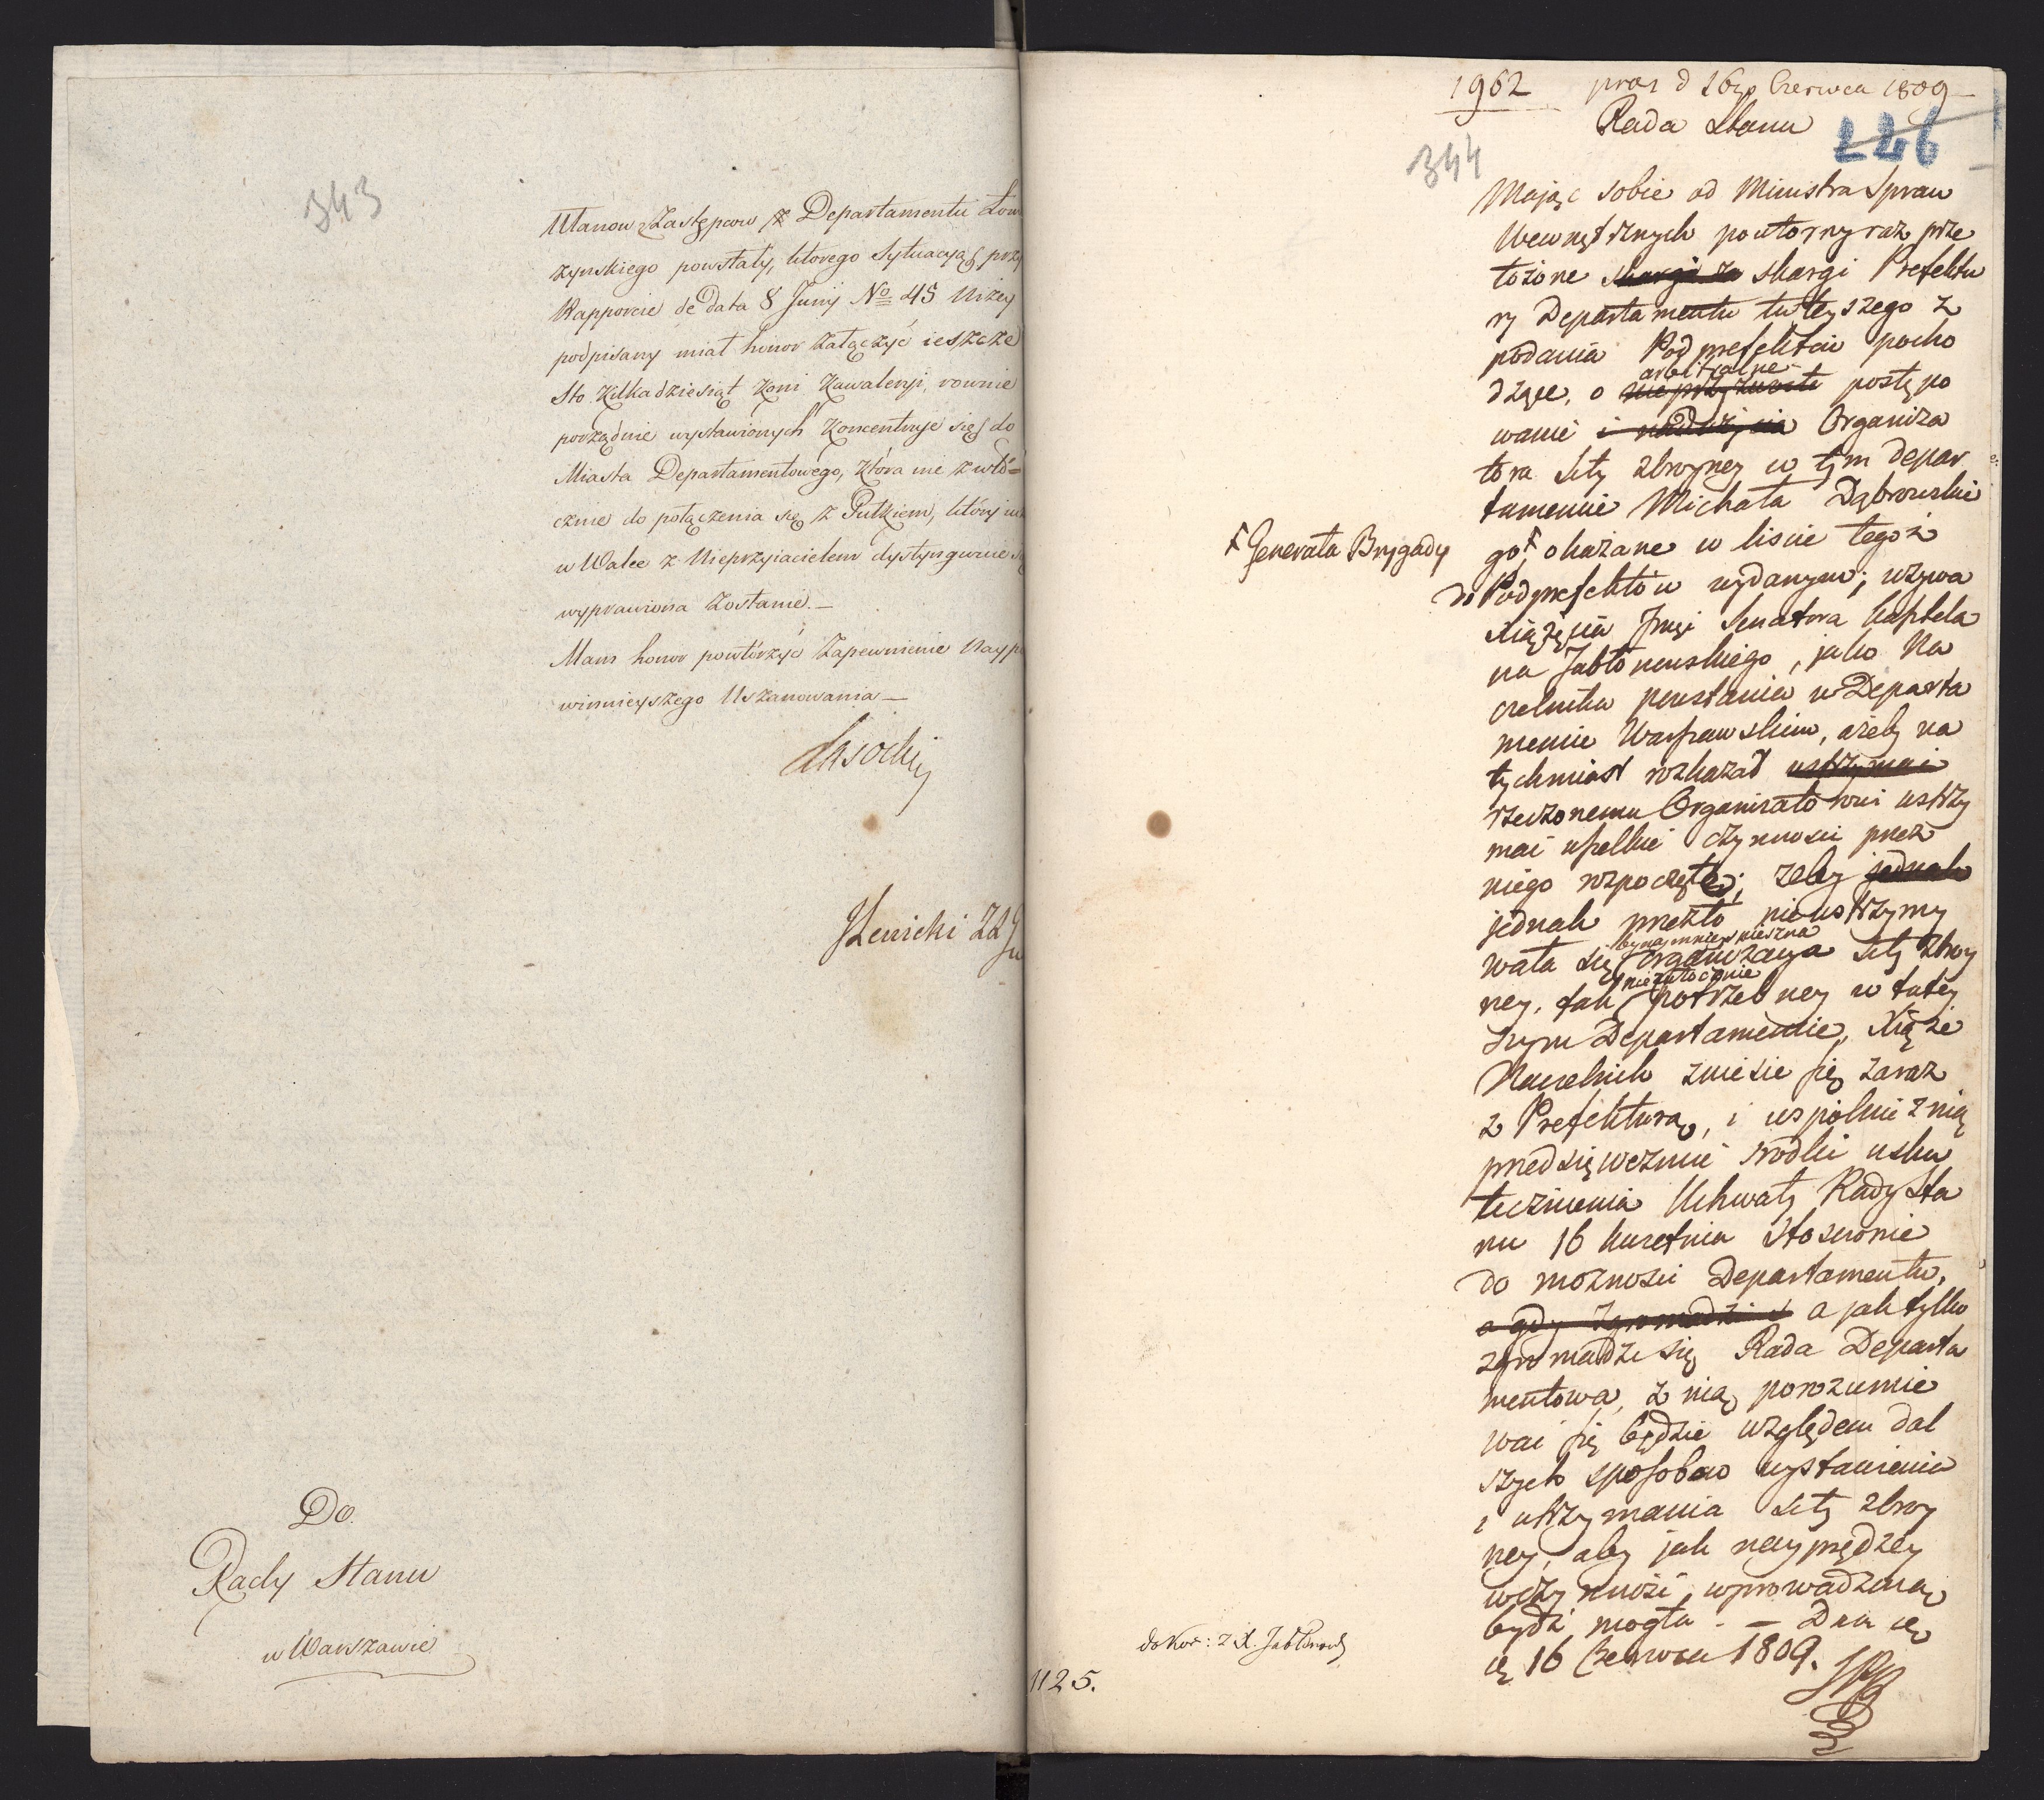 343
Ułanow Zastępcow z Departamentu Łom
żynskiego powstały, ktorego Sytuacyą przy
Rapporcie de Data 8 Junij No 45 Niżey
podpisany miał honor załączyć ieszcze
Sto Kilkadziesiąt Koni Kawaleryi, rownie
porządnie wystawionych Koncentruje się do
Miasta Departamentowego, Która nie zwło=
cznie do połączenia się z Pułkiem, ktòry iuż
w Walce z Nieprzyiacielem dystyngwuie się
wyprawiona Zostanie.—
Mam honor powtórzyć Zapewnienie Naypo
winnieyszego Uszanowania—
Lasocki
Do
Rady Stanu
w Warszawie
1962 pras d 16go Czerwca 1809
Rada Stanu
226
344
Mając sobie od Ministra Spraw
Wewnętrznych powtorny raz prze
łożone skargi za skargi Prefektu
ry Departamentu tuteyszego z
podania Podprefektów pocho
dzące, o nieprzyzwoite arbitralne postępo
wanie i nadużycia Organiza
tora siły zbroyney w tym depar
tamencie Michała Dąbrowskie
go + okazane w liscie tegoż
+ Generała Brygady
do Podprefektów wydanym; wzywa
Xiążęcia Jmci Senatora Kasztela
na Jabłonowskiego, jako Na
czelnika powstania w Departa
mencie Warszawskim, ażeby na
tychmiast rozkazał wstrzymać
rzeczonemu Organizatorowi wstrzy
mać wszelkie czynności przez
niego rozpoczęte; żeby jednak
jednak przezto nie wstrzymy
wała się bynajmniey spieszna organizacya siły zbroy
ney, tak niezwłocznie potrzebney w tutey
szym Departamencie, Xiąże
Naczelnik zniesie się zaraz
z Prefekturą, i wspólnie z nią
przedsięweźmie srodki usku
tecznienia Uchwały Rady Sta
nu 16 kwietnia stosownie
do możnosci Departamentu,
a gdy zgromadzi s a jak tylko
zgromadzi się Rada Departa
mentowa, z nią porozumie
wać się będzie względem dal
szych sposobow wystawienia
i utrzymania siły zbroy
ney, aby jak nayprędzey
w czynność wprowadzoną
bydź mogła. — Dan
16 Czerwca 1809.
do Kor: z X. Jabłonows
1125.